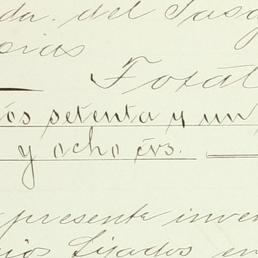 da. del Jasg
sias
Total
ós setenta y un
y ocho cvs.
presente inven
rios fijados en